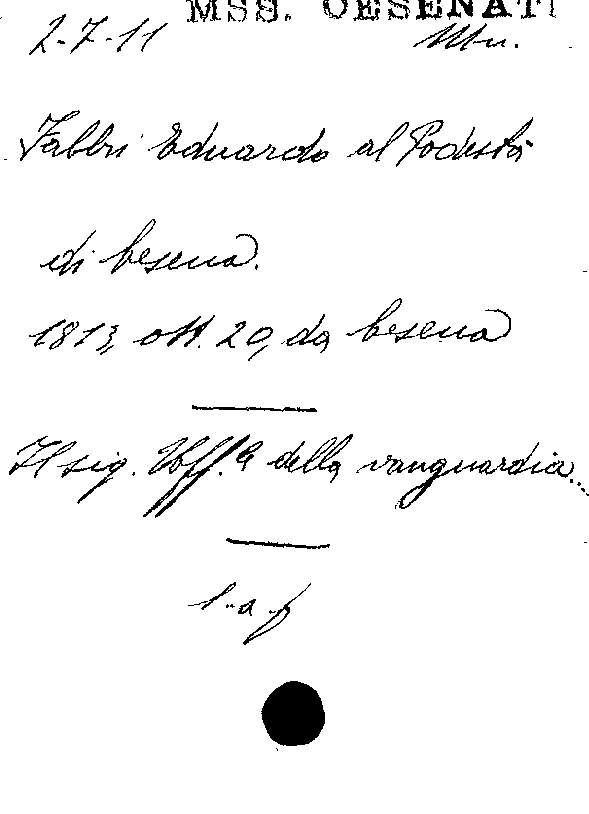 MSS. CESENATI
2-7-11
Fabbri Eduardo al Podestà
di Cesena.
1813, ott. 20, da Cesena
Il sig. Uff.le della vanguardia...